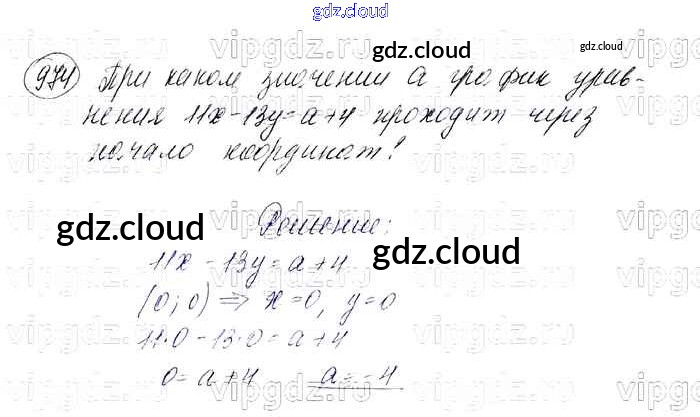 gdz.cloud
gdz.cloud
gdz.cloud
vipgdz.ru
974 При каком значении а график урав-
нения 11х-13у=а+4 проходит через
начало координат?
vipgdz.ru
gdz.cloud
Решение:
gdz.cloud
11х - 13у = а+4
(0; 0) ⇒ х=0, у=0
vipgdz.ru
11·0-13·0=а+4
0=а+4 а=-4
vipgdz.ru